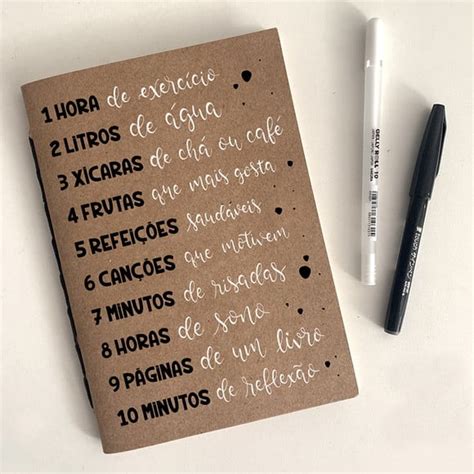 1 HORA de exercício
2 LITROS de água
3 XÍCARAS de chá ou café
4 FRUTAS que mais gosta
5 REFEIÇÕES saudáveis
6 CANÇÕES que motivem
7 MINUTOS de risadas
8 HORAS de sono
9 PÁGINAS de um livro
10 MINUTOS de reflexão
GELLY ROLL 10